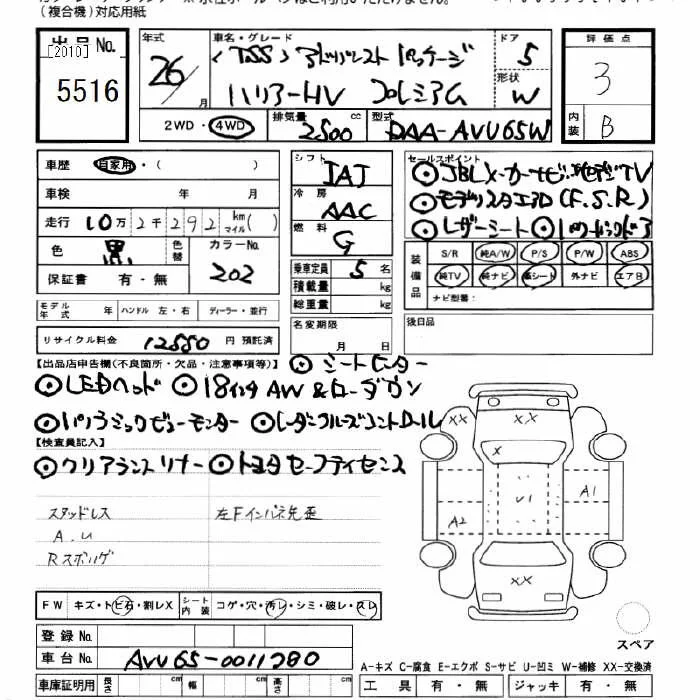 (複合機)対応用紙
出品No.
[2010]
5516
年式 26/月
車名・グレード
(TSS)アドバンスト パッケージ
ハリアーHV プレミアム
ドア 5
形状 W
評価点
3
内装 B
2WD・4WD
排気量 2500 cc
型式 DAA-AVU65W
車歴 自家用・( )
車検 年 月
走行 10万2千292 km マイル( )
色 黒 色替 カラーNo. 202
保証書 有・無
シフト IAT
冷房 AAC
燃料 G
乗車定員 5名
積載量 kg
総重量 kg
セールスポイント
◎JBLメーカーナビ・地デジTV
◎モデリスタエアロ(F.S.R)
◎レザーシート ◎パワーバックドア
装備品 S/R 純A/W P/S P/W ABS
純TV 純ナビ 革シート 外ナビ エアB
ナビ型番:
モデル年式 年 ハンドル 左・右 ディーラー・並行
名変期限 月 日
後日品
リサイクル料金 12550 円 預託済
【出品店申告欄(不良箇所・欠品・注意事項等)】 ◎シートヒーター
◎LEDヘッド ◎18インチAW&ローダウン
◎パノラミックビューモニター ◎レーダークルーズコントロール
【検査員記入】
◎クリアランスソナー ◎トヨタセーフティセンス
スタッドレス 左Fインパネ先歪
A.U
RスポUゲ
XX XX
X
U1 A1
A2
XX
FW キズ・トビ石・割レX シート内装 コゲ・穴・汚レ・シミ・破レ・スレ
登録No.
車台No. AVU65-0011780
スペア
A-キズ C-腐食 E-エクボ S-サビ U-凹ミ W-補修 XX-交換済
車庫証明用 長さ cm 幅 cm 高さ cm 工具 有・無 ジャッキ 有・無